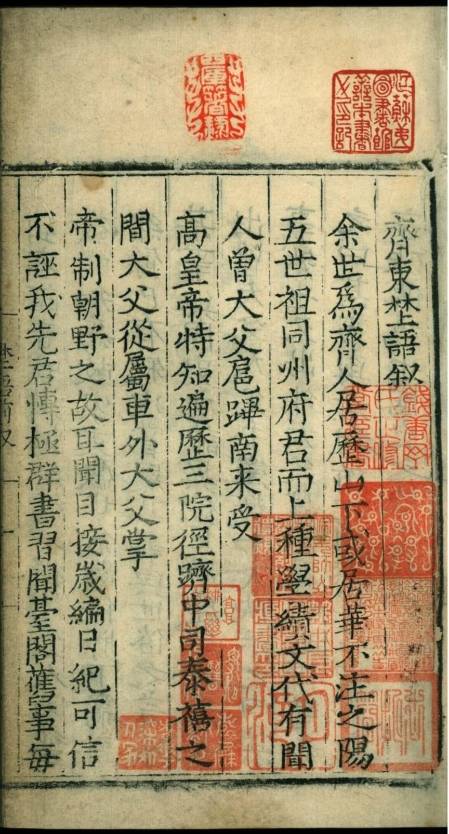 齊東埜語叙
余世爲齊人居歷山下或居華不注之陽
五世祖同州府君而上種學績文代有聞
人曾大父扈蹕南来受
髙皇帝特知遍歷三院徑躋中司泰禧之
間大父從屬車外大父掌
帝制朝野之故耳聞目接歲編日紀可信
不誣我先君博極群書習聞臺閣舊事每